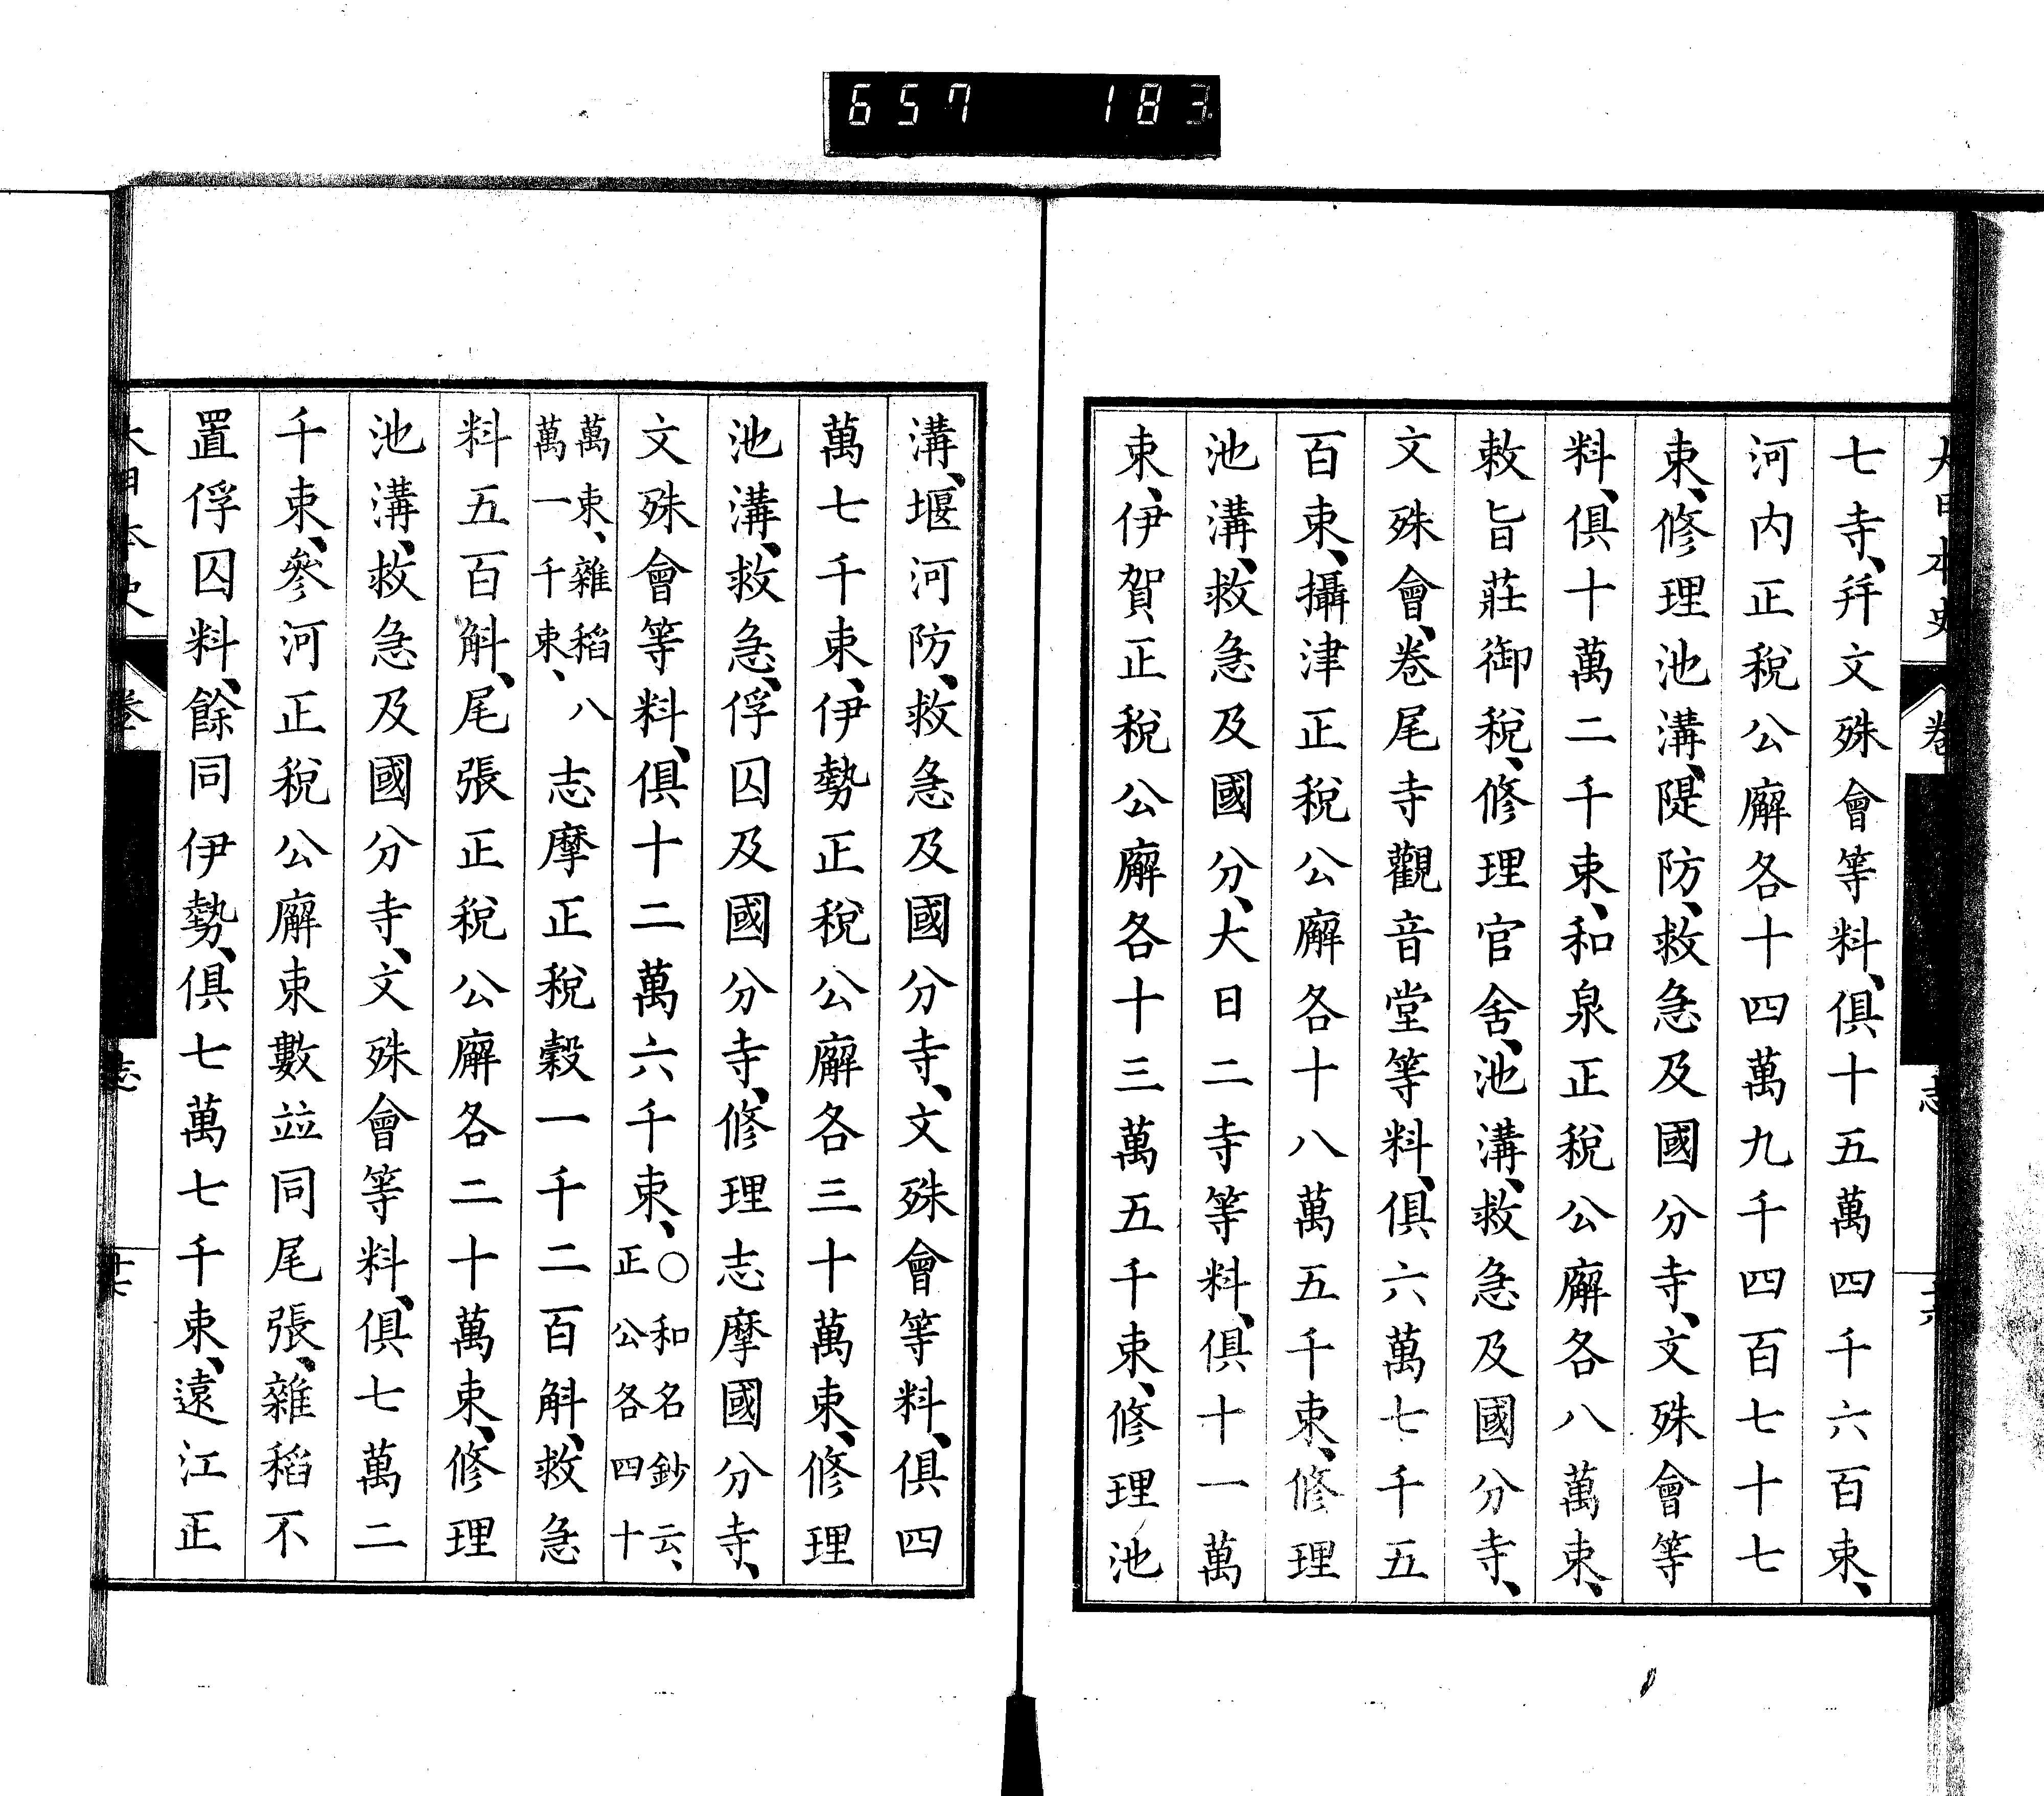 657 183
大日本史 卷 志
七寺、幷文殊會等料、俱十五萬四千六百束、
河内正稅公廨各十四萬九千四百七十七
束、修理池溝、隄防、救急及國分寺、文殊會等
料、俱十萬二千束、和泉正稅公廨各八萬束、
敕旨莊御稅、修理官舍、池溝、救急及國分寺、
文殊會、卷尾寺觀音堂等料、俱六萬七千五
百束、攝津正稅公廨各十八萬五千束、修理
池溝、救急及國分、大日二寺等料、俱十一萬
束、伊賀正稅公廨各十三萬五千束、修理池
溝、堰河防、救急及國分寺、文殊會等料、俱四
萬七千束、伊勢正稅公廨各三十萬束、修理
池溝、救急、俘囚及國分寺、修理志摩國分寺、
文殊會等料、俱十二萬六千束、○和名鈔云、正公各四十
萬束、雜稻八萬一千束、志摩正稅穀一千二百斛、救急
料五百斛、尾張正稅公廨各二十萬束、修理
池溝、救急及國分寺、文殊會等料、俱七萬二
千束、參河正稅公廨束數竝同尾張、雜稻不
置俘囚料、餘同伊勢、俱七萬七千束、遠江正
大日本史 卷 志